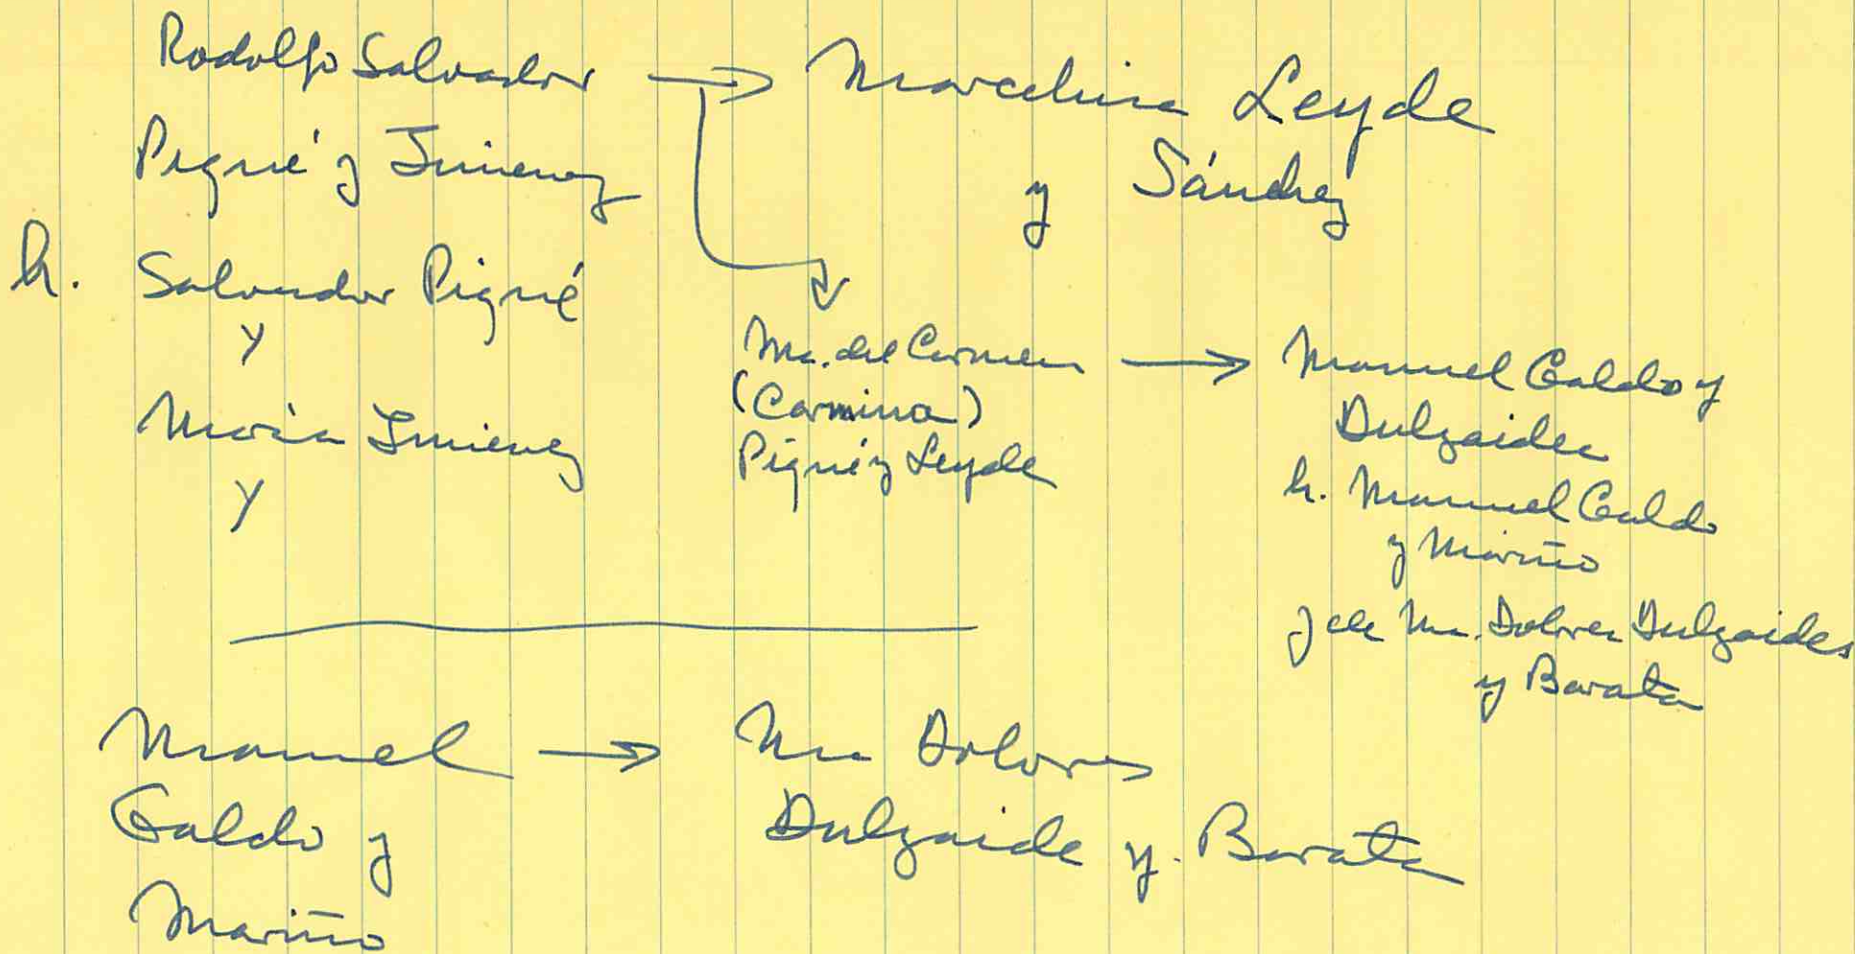 Rodolfo Salvador → Marcelina Leyde
Piqué y Jimenez
y Sánchez
h. Salvador Piqué
y
María Jimenez
y
Ma. del Carmen →
(Carmina)
Piqué y Leyde
Manuel Galdo y
Dulzaides
h. Manuel Galdo
y Mariño
y de Ma. Dolores Dulzaides
y Barata
Manuel → Ma Dolores
Galdo y
Mariño
Dulzaide y. Barata